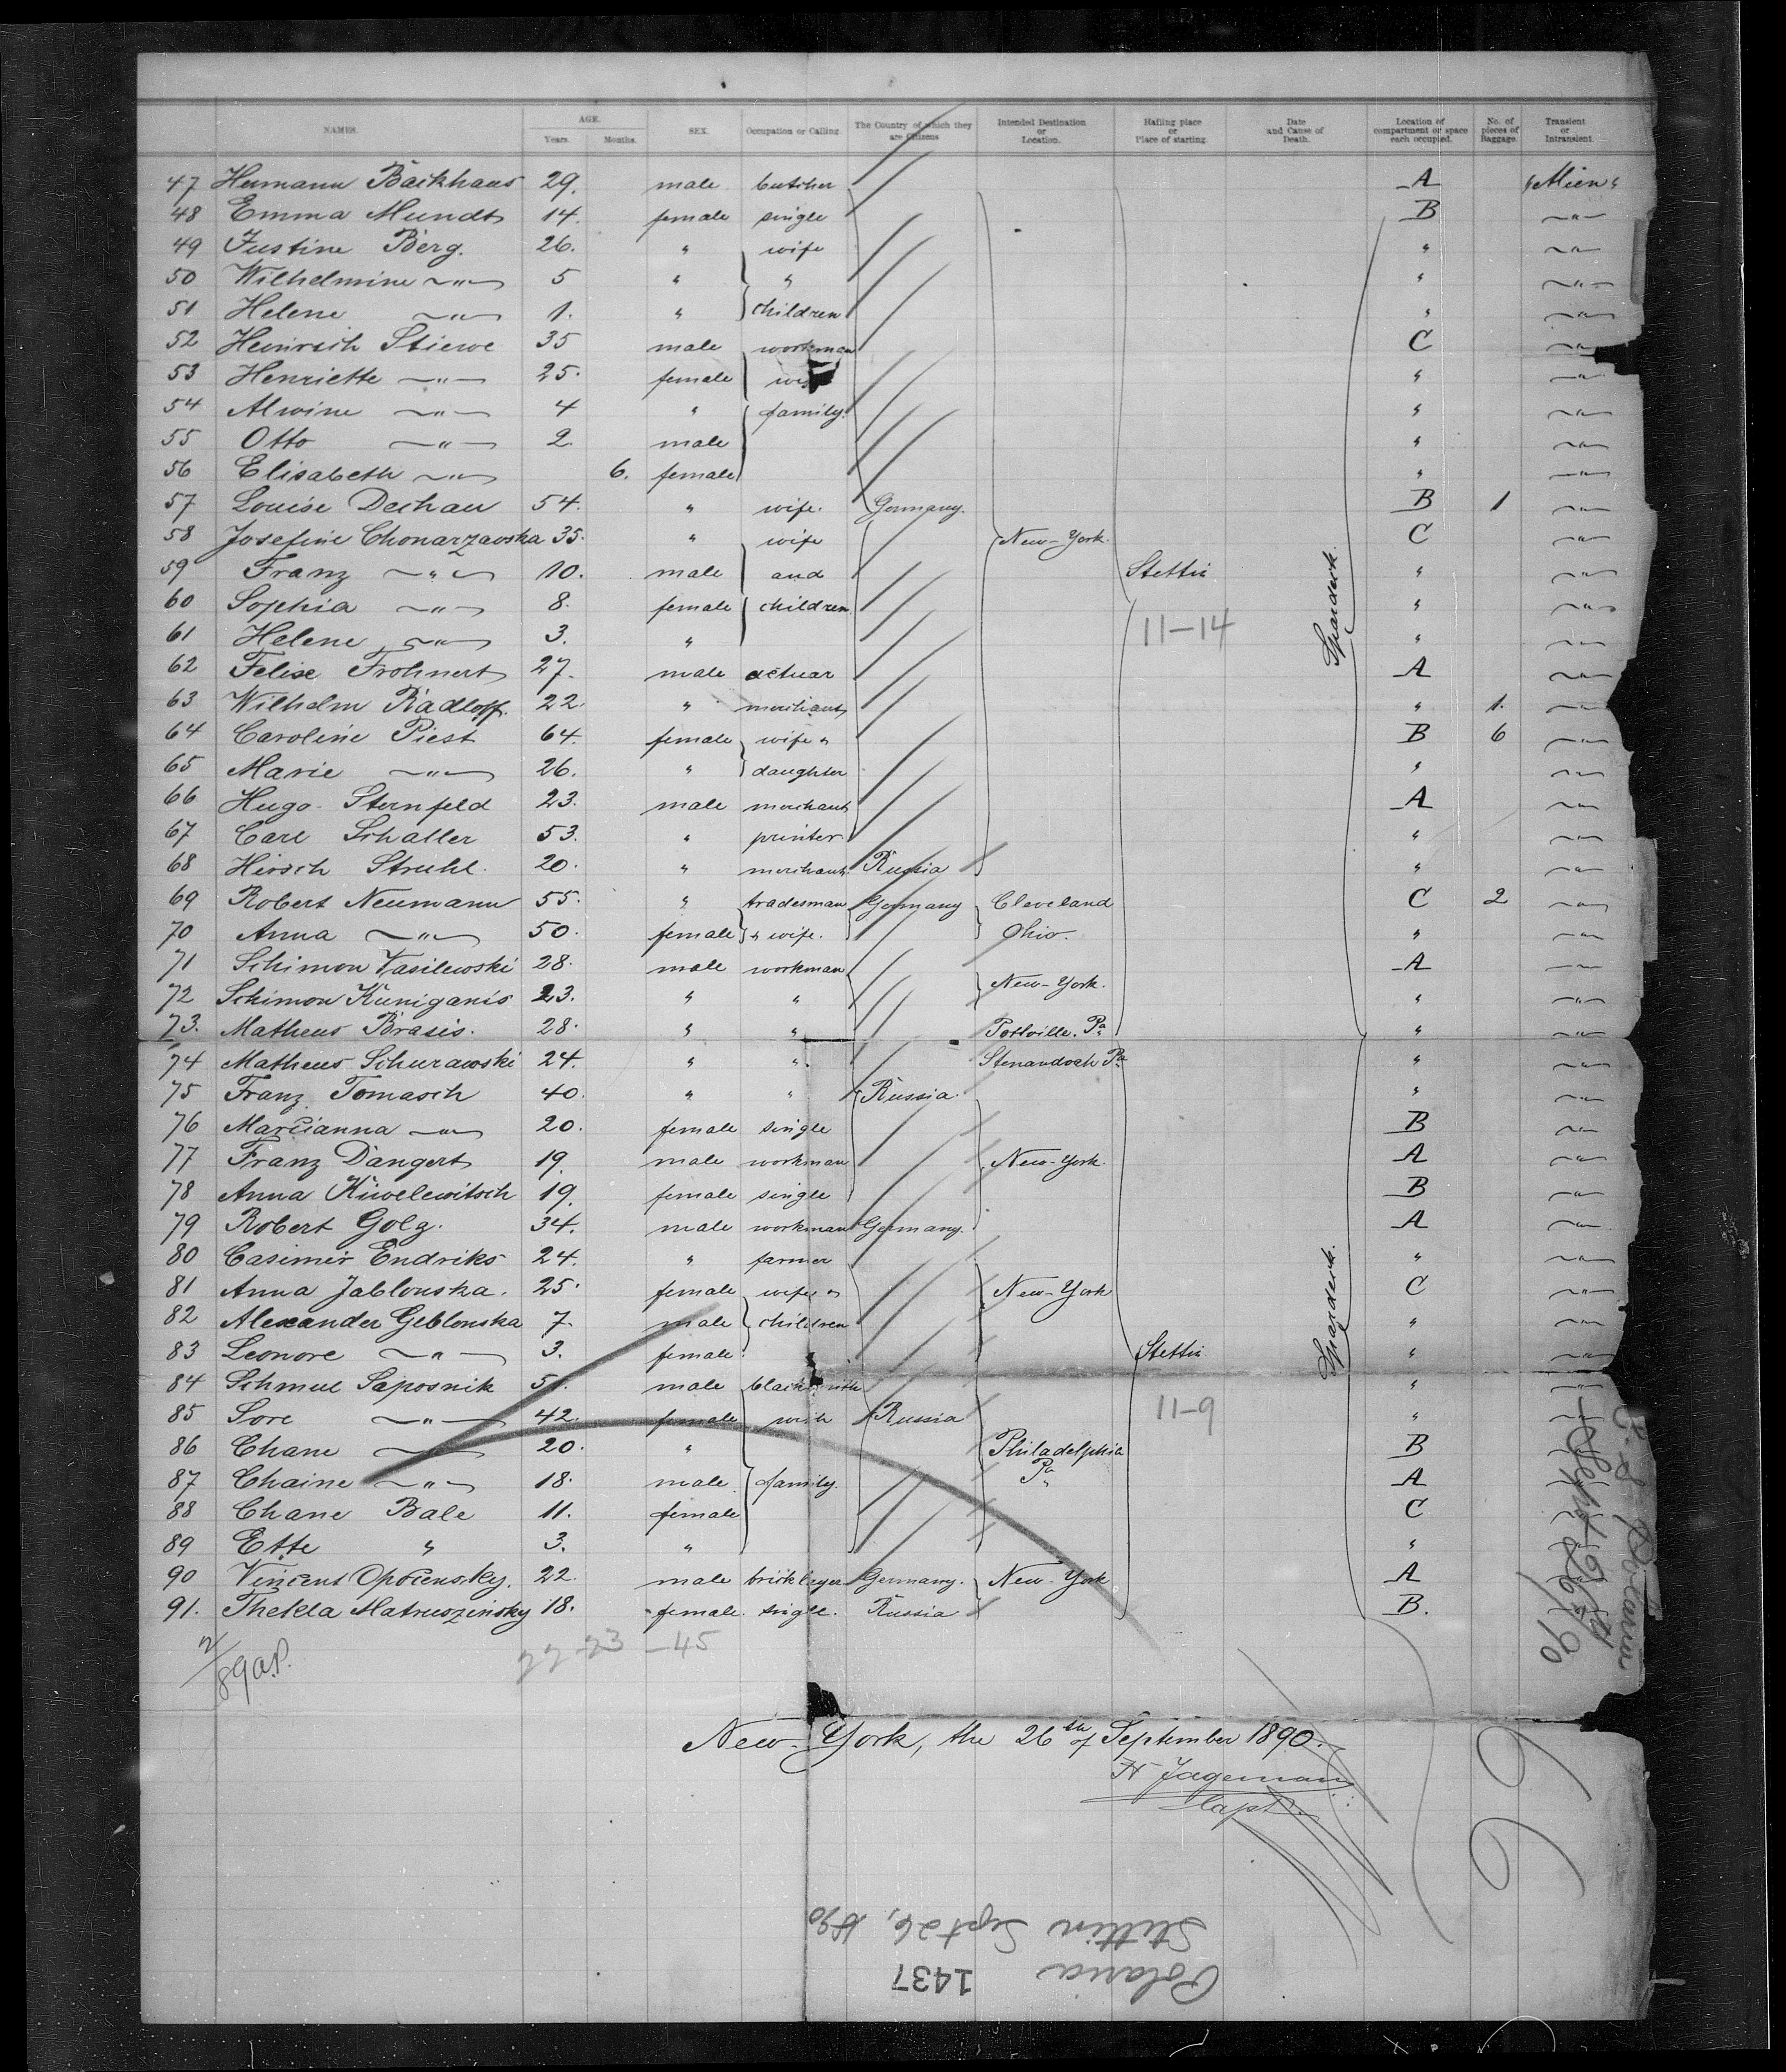 NAMES. AGE. SEX. Occupation or Calling. The Country of which they are Citizens Intended Destination or Location. Hailing place or Place of starting. Date and Cause of Death. Location of compartment or space each occupied. No. of pieces of Baggage. Transient or Intransient.
Years. Months.
47 Hermann Backhaus 29. male butcher A
48 Emma Mundt 14. female single B —"—
49 Justine Berg. 26. " wife " —"—
50 Wilhelmine —"— 5 " " " —"—
51 Helene —"— 1. " children " —"—
52 Heinrich Stiewe 35 male workman C —"—
53 Henriette —"— 25. female " —"—
54 Alwine —"— 4 " family. " —"—
55 Otto —"— 2. male " —"—
56 Elisabeth —"— 6. female " —"—
57 Louise Dechau 54. " wife. Germany. B 1 —"—
58 Josefine Chonarzawska 35. " wife New-York. C —"—
59 Franz —"— 10. male and Stettin " —"—
60 Sophia —"— 8. female children. " —"—
61 Helene —"— 3. " 11-14 " —"—
62 Felise Frohnert 27. male actuar A —"—
63 Wilhelm Radloff. 22. " merchant " 1. —"—
64 Caroline Piest 64. female wife " B 6 —"—
65 Marie —"— 26. " daughter " —"—
66 Hugo Sternfeld 23. male merchant A —"—
67 Carl Schaller 53. " printer " —"—
68 Hirsch Struhl. 20. " merchant. Russia " —"—
69 Robert Neumann 55. " tradesman Germany Cleveland C 2 —"—
70 Anna —"— 50. female " wife. Ohio. " —"—
71 Schimon Vasilewski 28. male workman A —"—
72 Schimon Kuniganis 23. " " New-York. " —"—
73. Matheus Brasis. 28. " " Pottville. Pa " —"—
74 Matheus Schurawski 24. " " Stenandoah Pa " —"—
75 Franz Tomasch 40. " " Russia. " —"—
76 Marcianna —"— 20. female single B —"—
77 Franz Dangert 19. male workman New-York. A —"—
78 Anna Kiwelewitsch 19. female single B —"—
79 Robert Golz. 34. male workman Germany. A —"—
80 Casimir Endriks 24. " farmer " —"—
81 Anna Jablonska. 25. female wife " New-York C —"—
82 Alexander Geblonska 7. male children " —"—
83 Leonore —"— 3. female. Stettin " —"—
84 Schmul Saposnik male blacksmith "
85 Sore —"— 42. female Russia 11-9 "
86 Chane —"— 20. " Philadelphia B
87 Chaine —"— 18. male family. Pa A
88 Chane Bale 11. female C
89 Ette " 3. " "
90 Vincent Opocensky. 22. male bricklayer Germany. New-York A
91. Thekla Matruszinsky 18. female. single. Russia B.
22-23 -45
New-York, the 26th of September 1890.
H Jagemann
Capt.
Polaria 1437
Stettin Sept 26, 1890